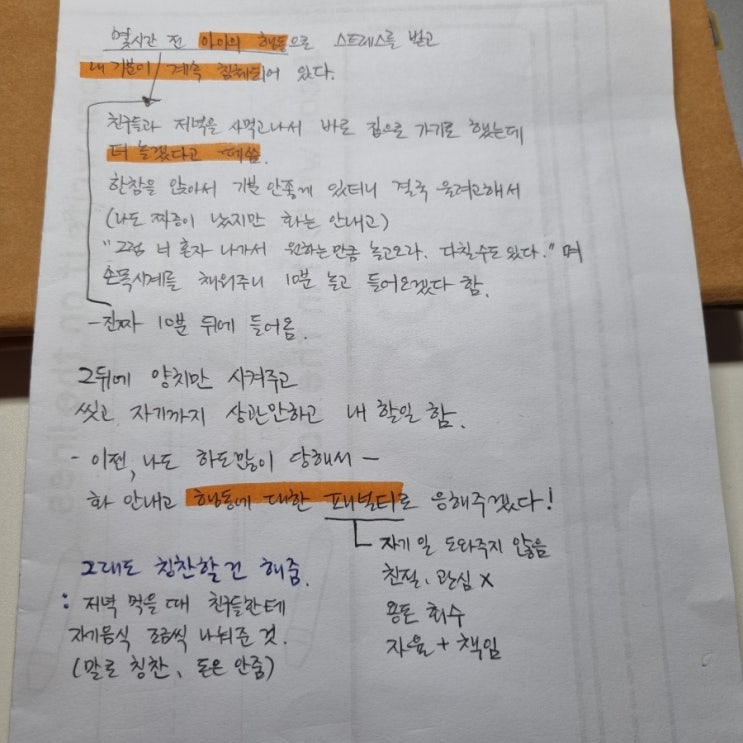 몇시간 전 아이의 행동으로 스트레스를 받고
내 기분이 계속 침체되어 있다.
친구들과 저녁을 사먹고나서 바로 집으로 가기로 했는데
더 놀겠다고 떼씀.
한참을 앉아서 기분 안좋게 있더니 결국 울려고해서
(나도 짜증이 났지만 화는 안내고)
"그럼 너 혼자 나가서 원하는만큼 놀고오라. 다칠수도 있다." 며
손목시계를 채워주니 10분 놀고 들어오겠다 함.
-진짜 10분 뒤에 들어옴.
그뒤에 양치만 시켜주고
씻고 자기까지 상관안하고 내 할일 함.
- 이젠, 나도 하도많이 당해서 -
화 안내고 행동에 대한 패널티로 응해주겠다!
자기 일 도와주지 않음
친절, 관심 X
용돈 회수
자율 + 책임
그래도 칭찬할건 해줌.
: 저녁 먹을 때 친구들한테
자기음식 조금씩 나눠준 것.
(말로 칭찬, 돈은 안줌)